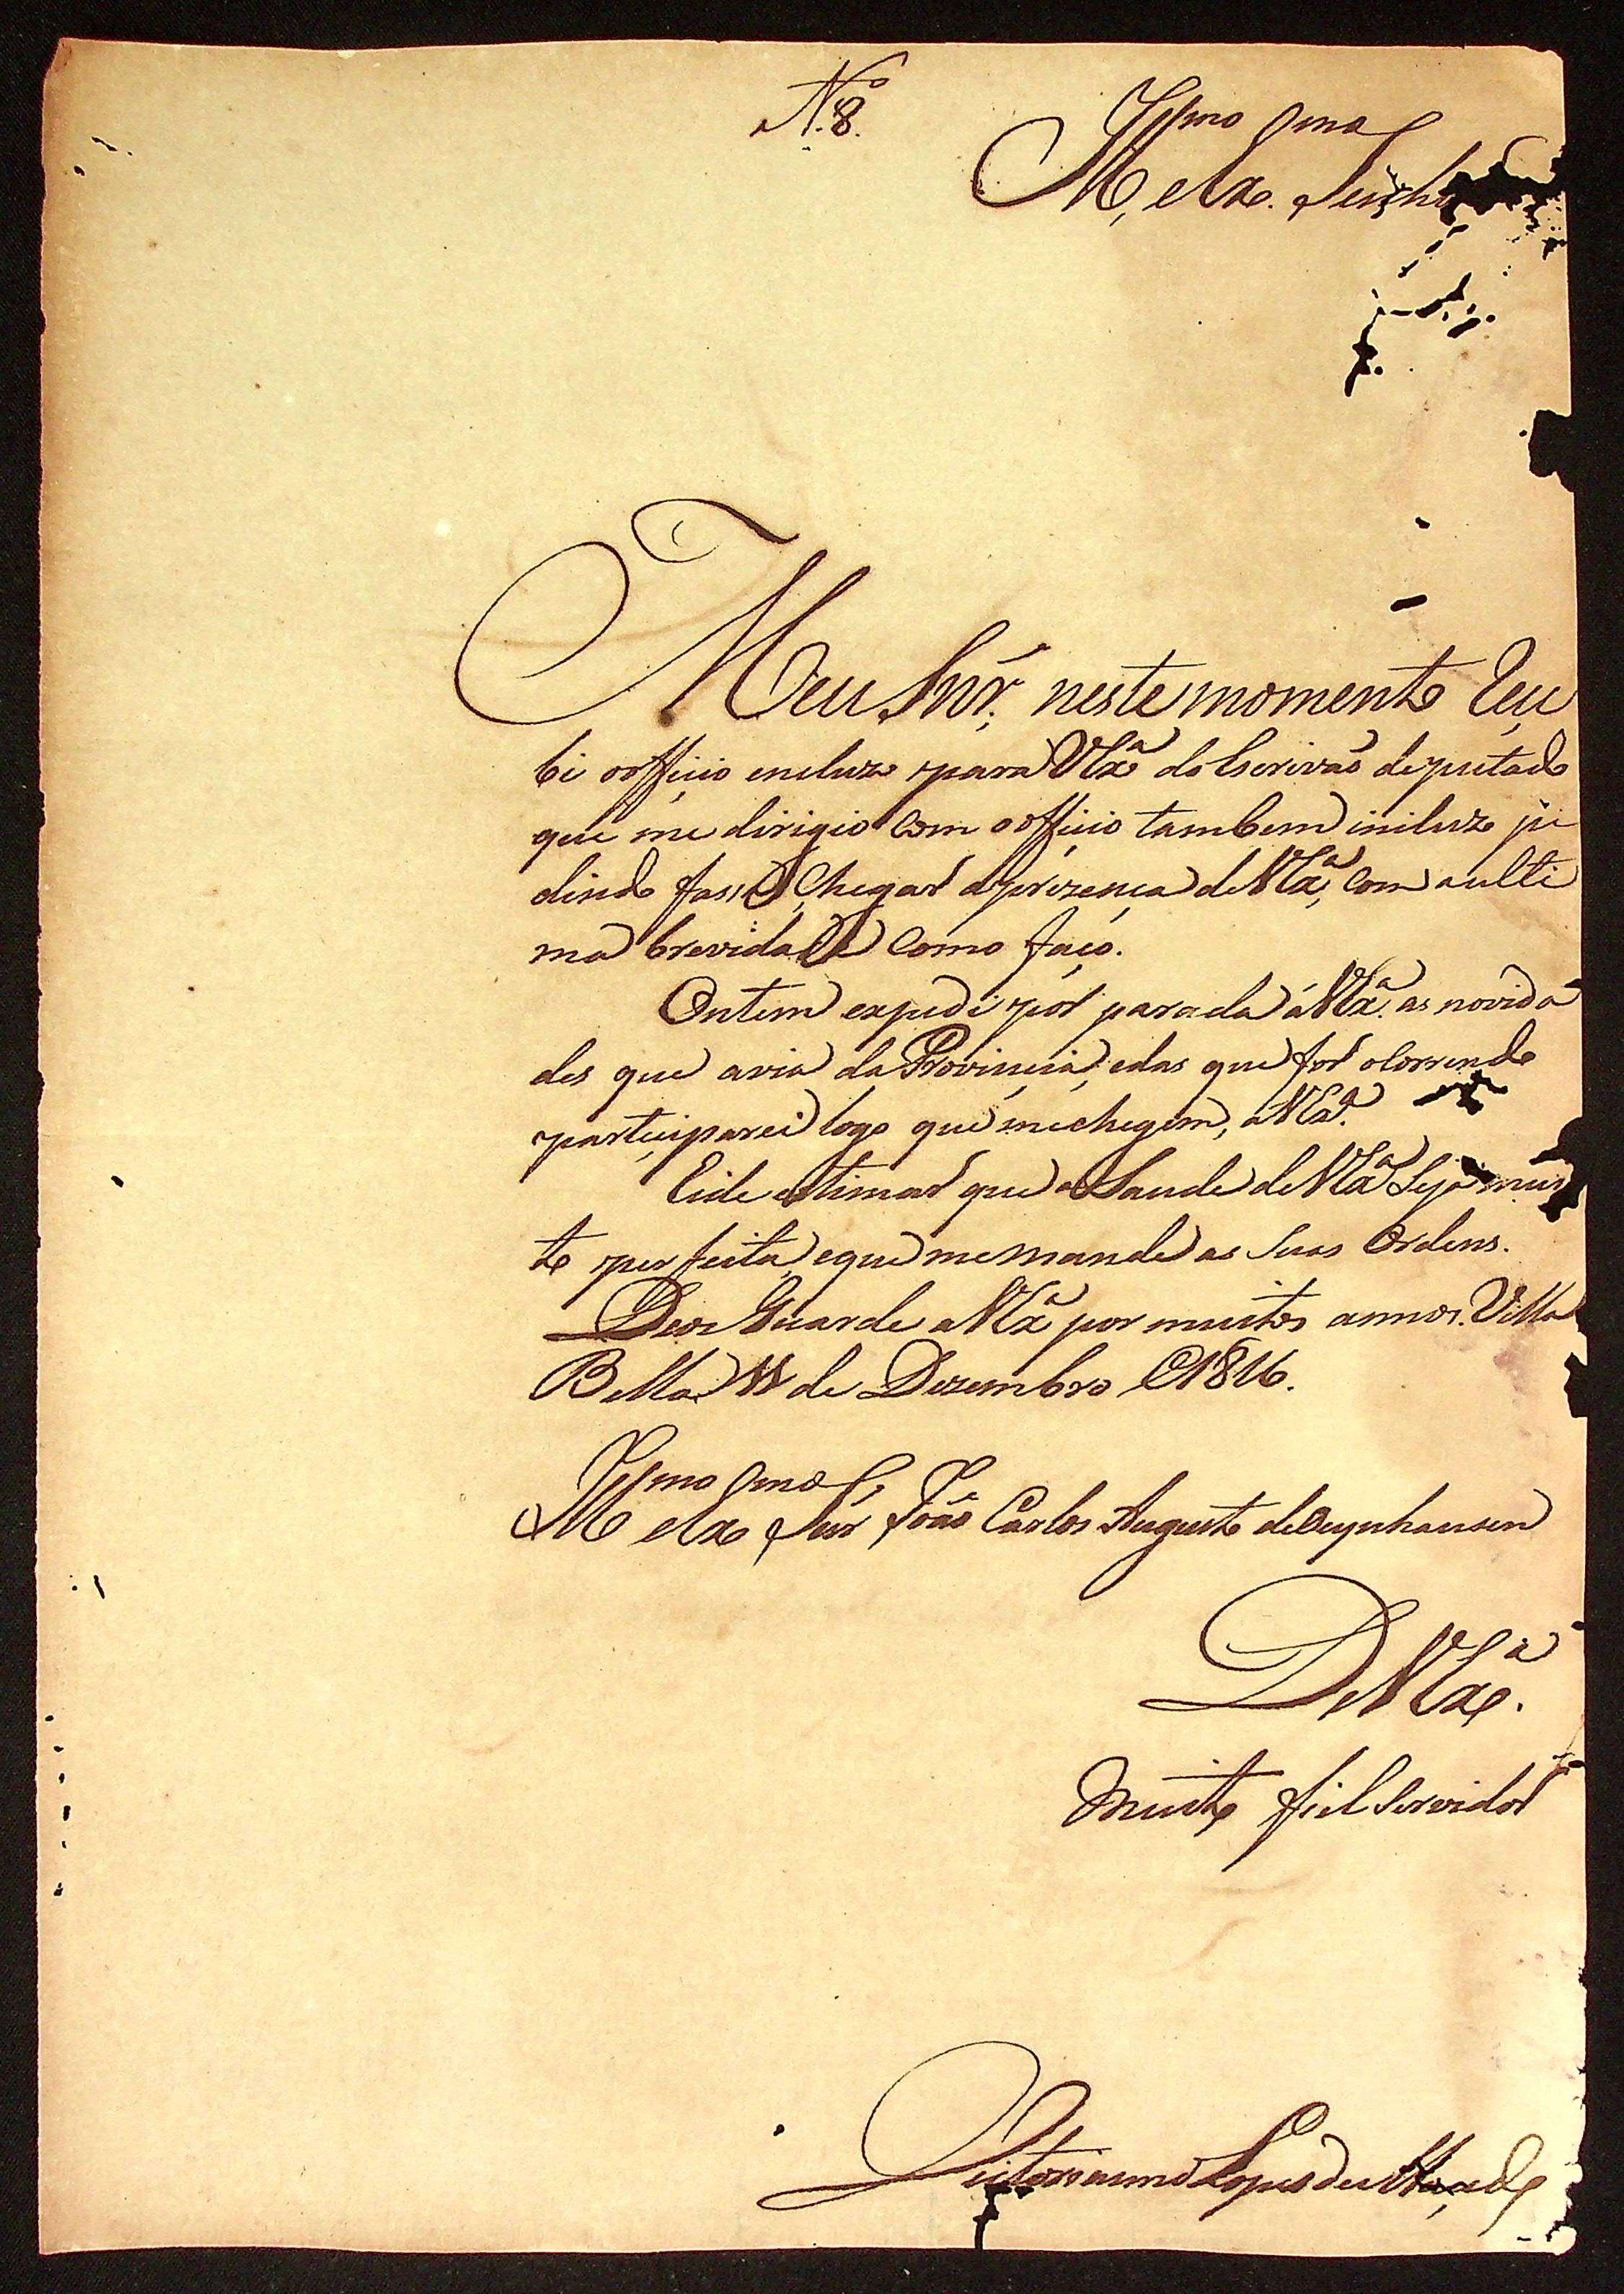 N.º 8.
Ill.mo e Ex.mo Senho
Meu Snr. neste momento Reçe
bi o offiçio incluzo para V Ex.ª do Escrivaõ deputado
que me dirigio com o offiçio tambem incluzo pe
dindo fasa chegar a prezença de V Ex.ª, com a ulti
ma brevidade como faço.
Ontem expedi por parada á V Ex.ª as novida
des que avia da Provinçia, e das que for ocorrendo
partiçiparei logo que me chegem, a V Ex.ª
Eide estimar que a Saude de V Ex.ª Seja mui
to perfeita, e que me mande as Suas Ordens.
Deos Guarde a V Ex.ª por muitos annos. Villa
Bella 11 de Dezembro 1816.
Ill.mo e Ex.mo Snr João Carlos Augusto de Oeynhausen
De V Ex.ª
Muito fiel Servidor
Victoriano Lopes de Macedo